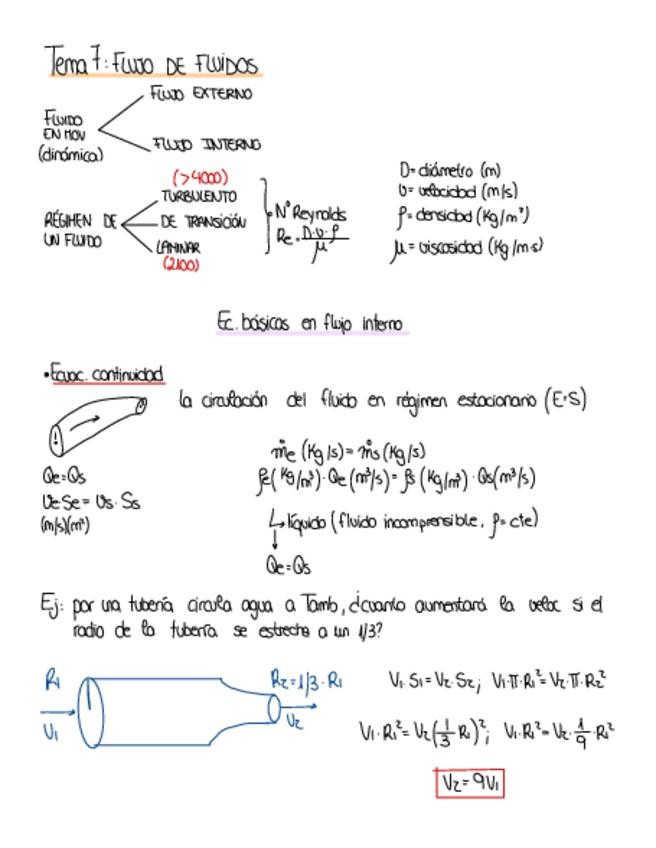 Tema 7: FLUJO DE FLUIDOS
FLUJO EXTERNO
FLUIDO
EN MOV
(dinámica)
FLUJO INTERNO
(>4000)
TURBULENTO
RÉGIMEN DE
UN FLUIDO
DE TRANSICIÓN
LAMINAR
(2100)
Nº Reynolds
Re = D·v·ρ / μ
D= diámetro (m)
v= velocidad (m/s)
ρ= densidad (Kg/m³)
μ= viscosidad (Kg/m·s)
Ec. básicas en flujo interno
• Ecuac. continuidad
la circulación del fluido en régimen estacionario (E=S)
ṁe (Kg/s) = ṁs (Kg/s)
ρe (Kg/m³) · Qe (m³/s) = ρs (Kg/m³) · Qs (m³/s)
Qe=Qs
ve·Se = vs·Ss
(m/s)(m²)
↳ líquido (fluido incomprensible, ρ= cte)
↓
Qe=Qs
Ej: por una tubería circula agua a Tamb, ¿cuanto aumentará la veloc si el
radio de la tubería se estrecha a un 1/3?
R1
V1
R2 = 1/3 · R1
V2
V1·S1 = V2·S2; V1·π·R1² = V2·π·R2²
V1·R1² = V2 (1/3 R1)²; V1·R1² = V2·1/9·R1²
V2 = 9V1